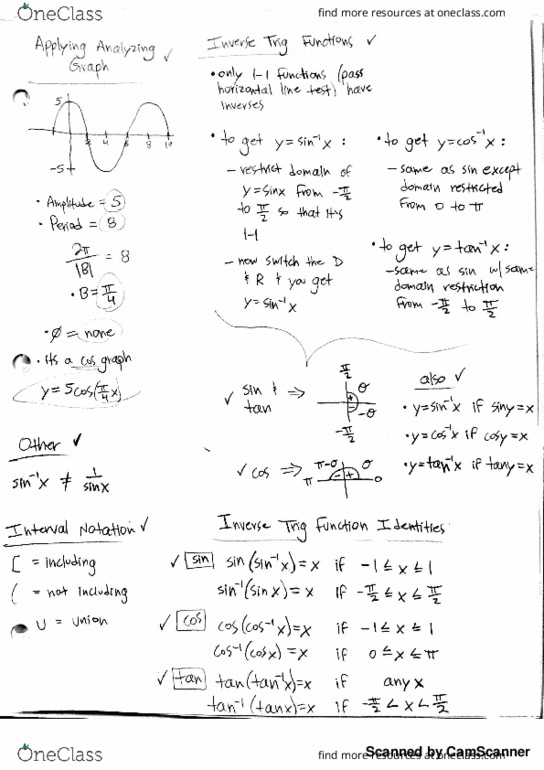 OneClass
find more resources at oneclass.com
Applying Analyzing ✓
Graph
5
-5
2 4 6 8 10
• Amplitude = 5
• Period = 8
2π/|B| = 8
• B = π/4
• Ø = none
• Its a cos graph
y = 5cos(π/4 x)
Other ✓
sin⁻¹x ≠ 1/sinx
Interval Notation ✓
[ = including
( = not including
U = union
Inverse Trig Functions ✓
• only 1-1 functions (pass
horizontal line test) have
inverses
• to get y=sin⁻¹x :
- restrict domain of
y=sinx from -π/2
to π/2 so that its
1-1
- now switch the D
& R & you get
y=sin⁻¹x
• to get y=cos⁻¹x :
- same as sin except
domain restricted
from 0 to π
• to get y=tan⁻¹x :
- same as sin w/ same
domain restriction
from -π/2 to π/2
✓ sin &
tan ⇒
π/2
θ
+
-θ
-π/2
✓ cos ⇒
π-θ θ
π - + 0
also ✓
• y=sin⁻¹x if siny=x
• y=cos⁻¹x if cosy=x
• y=tan⁻¹x if tany=x
Inverse Trig Function Identities
✓ sin sin(sin⁻¹x)=x if -1≤x≤1
sin⁻¹(sinx)=x if -π/2≤x≤π/2
✓ cos cos(cos⁻¹x)=x if -1≤x≤1
cos⁻¹(cosx)=x if 0≤x≤π
✓ tan tan(tan⁻¹x)=x if any x
tan⁻¹(tanx)=x if -π/2<x<π/2
OneClass
find more resources at oneclass.com
Scanned by CamScanner